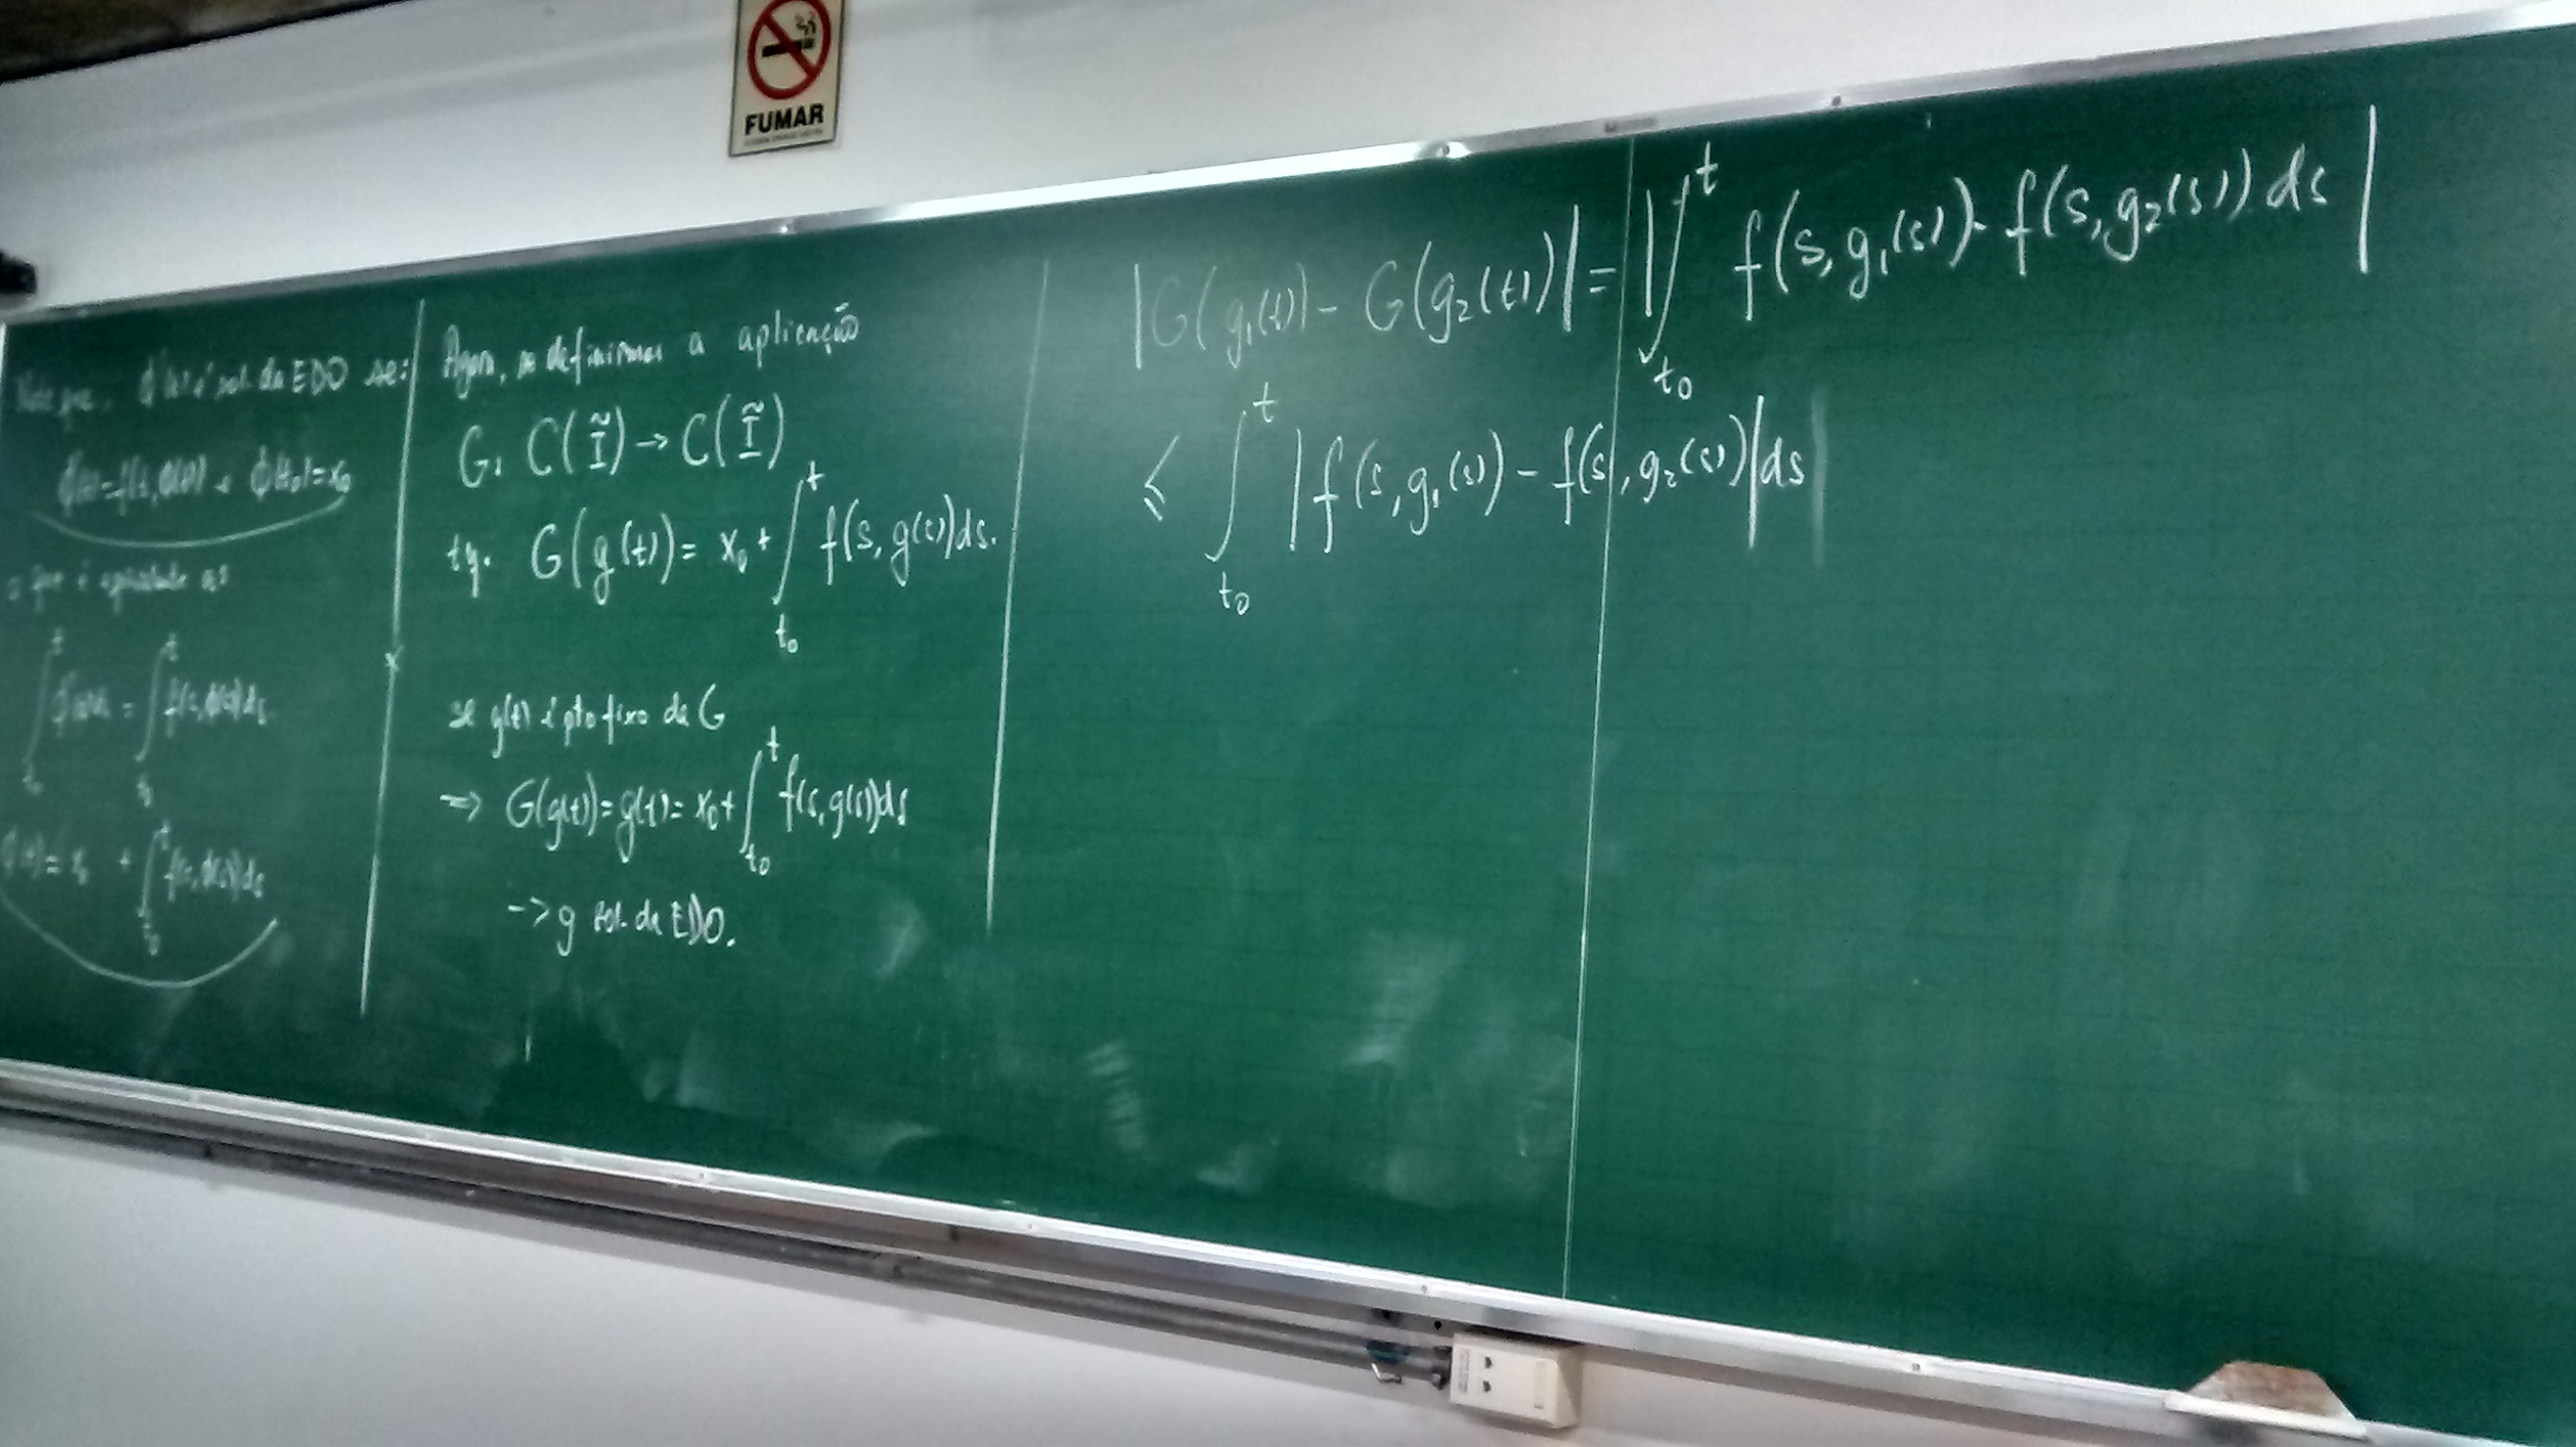 FUMAR
Note que, φ(t) é sol. da EDO se:
φ'(t)=f(t,φ(t)) e φ(t₀)=x₀
o que é equivalente as
∫_{t₀}^{t} φ'(s)ds = ∫_{t₀}^{t} f(s,φ(s))ds.
φ(t)= x₀ + ∫_{t₀}^{t} f(s,φ(s))ds
Agora, se definirmos a aplicação
G: C(Ĩ) → C(Ĩ)
tq. G(g(t)) = x₀ + ∫_{t₀}^{t} f(s, g(s))ds.
se g(t) é pto fixo da G
⇒ G(g(t)) = g(t) = x₀ + ∫_{t₀}^{t} f(s, g(s))ds
→ g sol. da EDO.
|G(g₁(t)) - G(g₂(t))| = |∫_{t₀}^{t} f(s, g₁(s)) - f(s, g₂(s)) ds|
≤ ∫_{t₀}^{t} |f(s, g₁(s)) - f(s, g₂(s))| ds